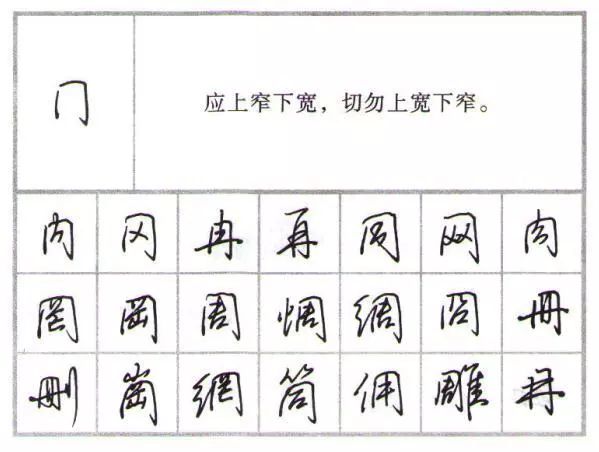 冂 应上窄下宽，切勿上宽下窄。
内 冈 冉 再 网 肉
罔 岡 周 惆 绸 冏 冊
删 崗 網 筒 佣 雕